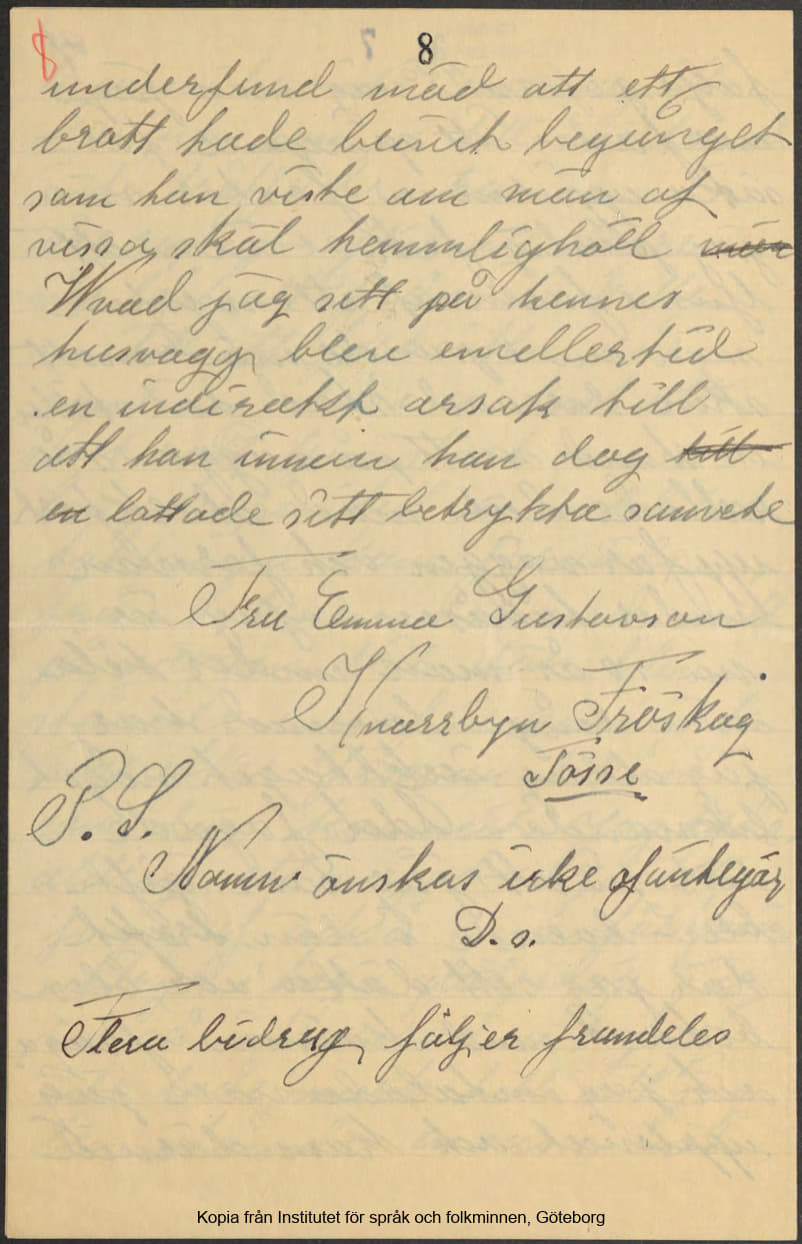 8 8
underfund mäd att ett
brott hade blivit begånget
som hon viste om män af
vissa skäl hemmlighöll
Wvad jag sett på hennes
husvägg blev emellertid
en indirektt orsak till
att hon innan hon dog till
en lättade sitt betrykta samvete
Fru Emma Gustavson
Knarrbyn Fröskog
Tösse
P. S.
Namn önskas icke
D. s.
Flera bidrag följer framdeles
Kopia från Institutet för språk och folkminnen, Göteborg